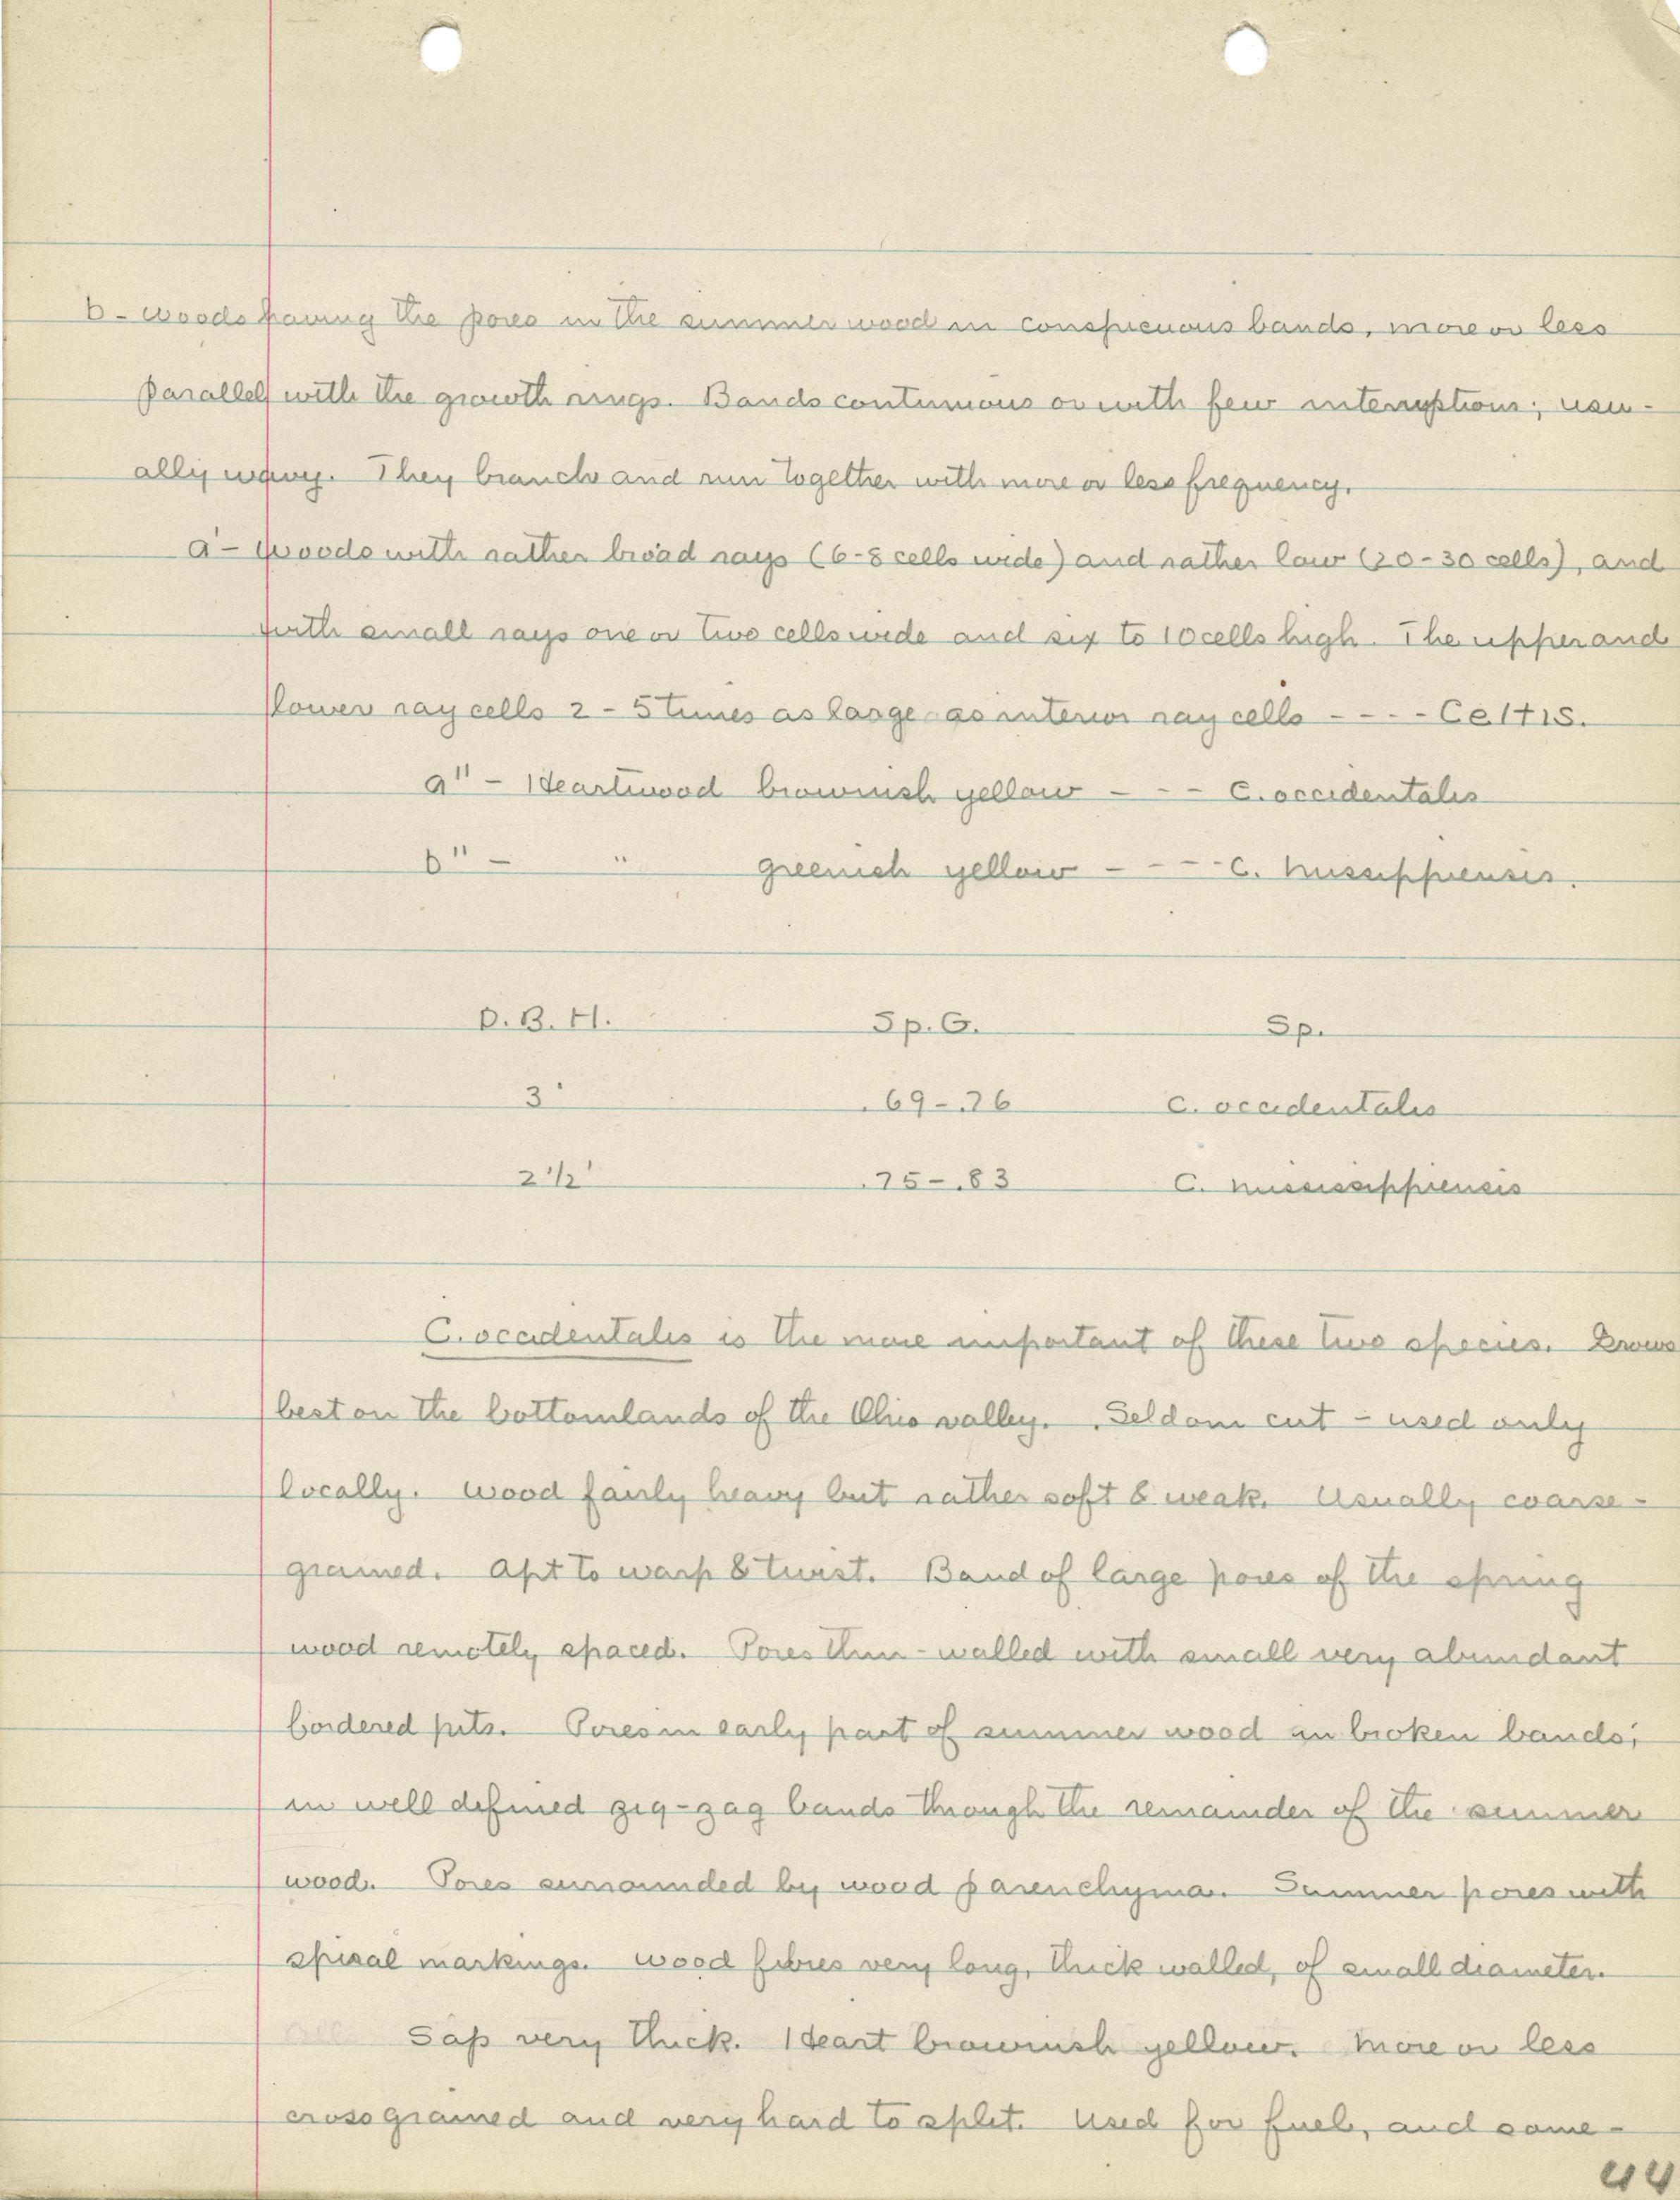 b - Woods having the pores in the summer wood in conspicuous bands, more or less
parallel with the growth rings. Bands continuous or with few interruptions; usu-
ally wavy. They branch and run together with more or less frequency.
a' - Woods with rather broad rays (6-8 cells wide) and rather low (20-30 cells), and
with small rays one or two cells wide and six to 10 cells high. The upper and
lower ray cells 2 - 5 times as large as interior ray cells - - - - Celtis.
a'' - Heartwood brownish yellow - - - C. occidentalis
b'' - " greenish yellow - - - - C. mississippiensis.
D.B.H. Sp. G. Sp.
3' .69-.76 C. occidentalis
2 1/2' .75-.83 C. mississippiensis
C. occidentalis is the more important of these two species. Grows
best on the bottomlands of the Ohio valley. Seldom cut - used only
locally. Wood fairly heavy but rather soft & weak. Usually coarse-
grained. Apt to warp & twist. Band of large pores of the spring
wood remotely spaced. Pores thin-walled with small very abundant
bordered pits. Pores in early part of summer wood in broken bands;
in well defined zig-zag bands through the remainder of the summer
wood. Pores surrounded by wood parenchyma. Summer pores with
spiral markings. Wood fibres very long, thick walled, of small diameter.
Sap very thick. Heart brownish yellow. More or less
cross grained and very hard to split. Used for fuel, and some-
44